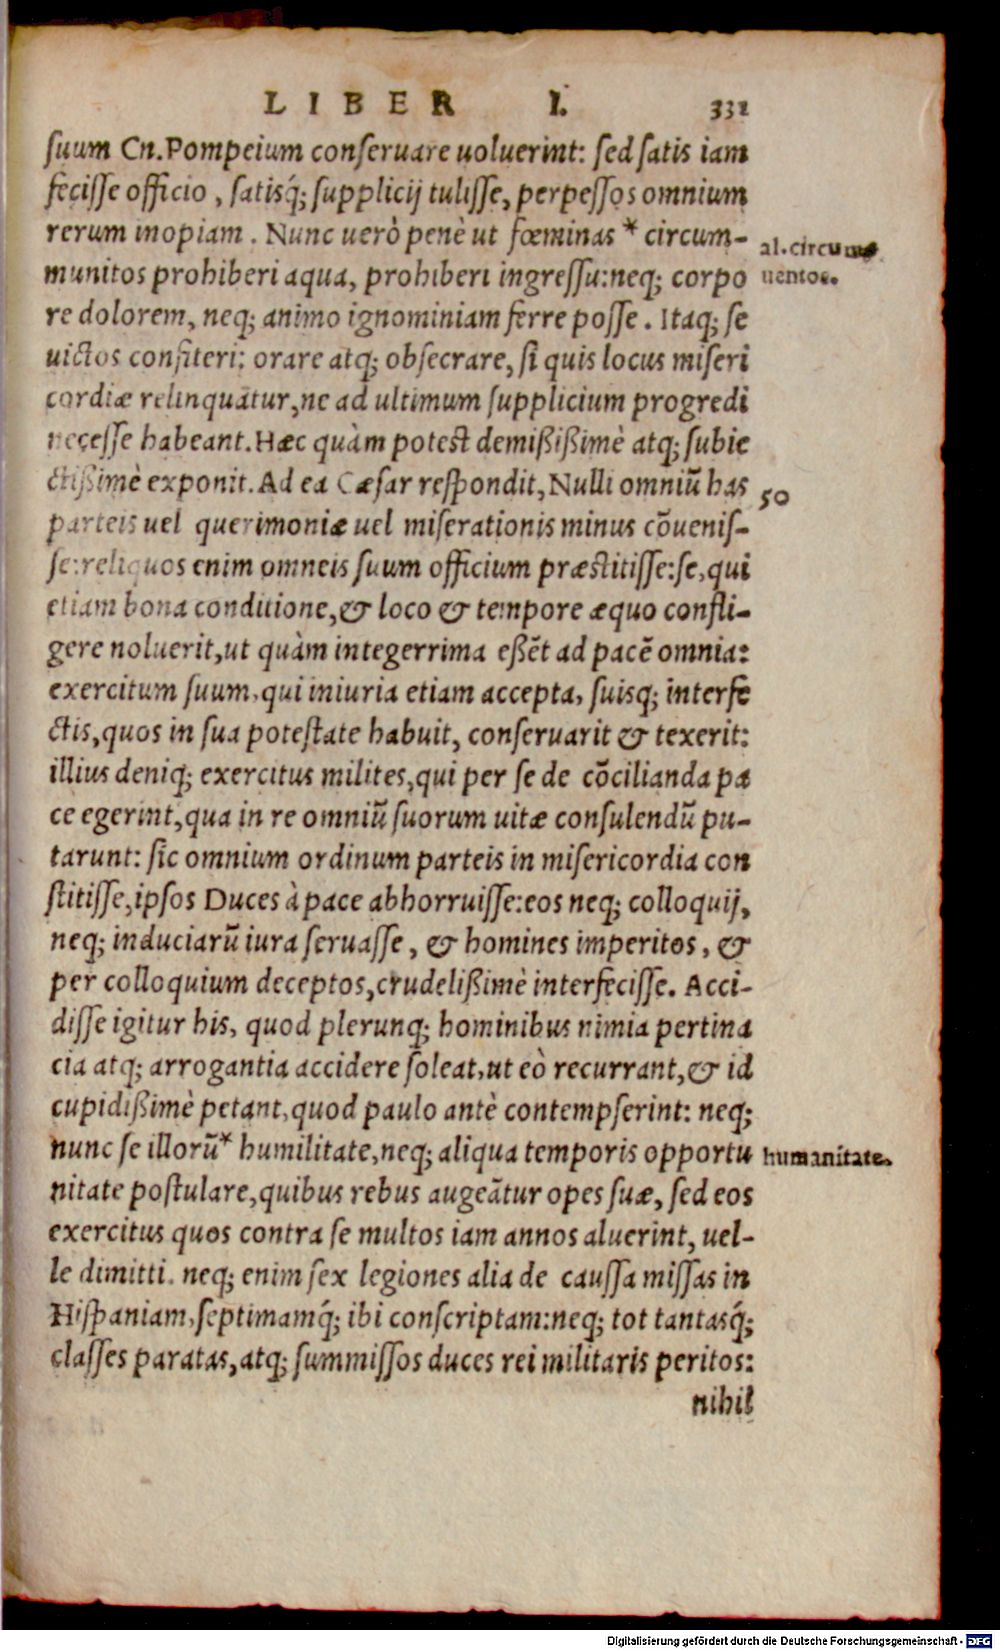 LIBER I. 331
suum Cn. Pompeium conseruare uoluerint: sed satis iam
fecisse officio, satisq́; supplicij tulisse, perpessos omnium
rerum inopiam. Nunc uerò penè ut fœminas * circum-
al. circum
munitos prohiberi aqua, prohiberi ingressu: neq; corpo
uentos.
re dolorem, neq; animo ignominiam ferre posse. Itaq; se
uictos confiteri: orare atq; obsecrare, si quis locus miseri
cordiæ relinquatur, ne ad ultimum supplicium progredi
necesse habeant. Hæc quàm potest demißißimè atq; subie
ctißimè exponit. Ad ea Cæsar respondit, Nulli omniũ has
50
parteis uel querimoniæ uel miserationis minus cõuenis-
se: reliquos enim omneis suum officium præstitisse: se, qui
etiam bona conditione, & loco & tempore æquo confli-
gere noluerit, ut quàm integerrima eßẽt ad pacẽ omnia:
exercitum suum, qui iniuria etiam accepta, suisq; interfe
ctis, quos in sua potestate habuit, conseruarit & texerit:
illius deniq; exercitus milites, qui per se de cõcilianda pa
ce egerint, qua in re omniũ suorum uitæ consulendũ pu-
tarunt: sic omnium ordinum parteis in misericordia con
stitisse, ipsos Duces à pace abhorruisse: eos neq; colloquij,
neq; induciarũ iura seruasse, & homines imperitos, &
per colloquium deceptos, crudelißimè interfecisse. Acci-
disse igitur his, quod plerunq; hominibus nimia pertina
cia atq; arrogantia accidere soleat, ut eò recurrant, & id
cupidißimè petant, quod paulo antè contempserint: neq;
nunc se illorũ* humilitate, neq; aliqua temporis opportu
humanitate.
nitate postulare, quibus rebus augeãtur opes suæ, sed eos
exercitus quos contra se multos iam annos aluerint, uel-
le dimitti. neq; enim sex legiones alia de caussa missas in
Hispaniam, septimamq́; ibi conscriptam: neq; tot tantasq́;
classes paratas, atq; summissos duces rei militaris peritos:
nihil
Digitalisierung gefördert durch die Deutsche Forschungsgemeinschaft - DFG